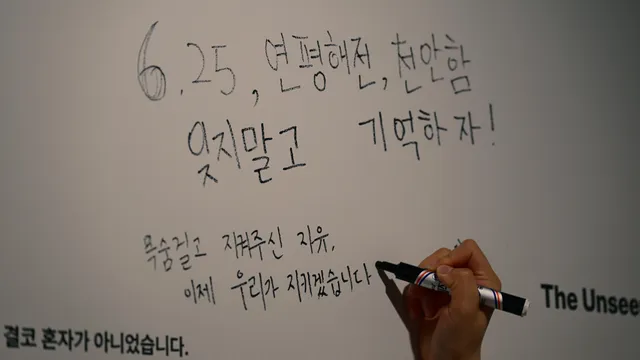 6.25, 연평해전, 천안함
잊지말고 기억하자!
목숨걸고 지켜주신 자유,
이제 우리가 지키겠습니다
The Unsee
결코 혼자가 아니었습니다.